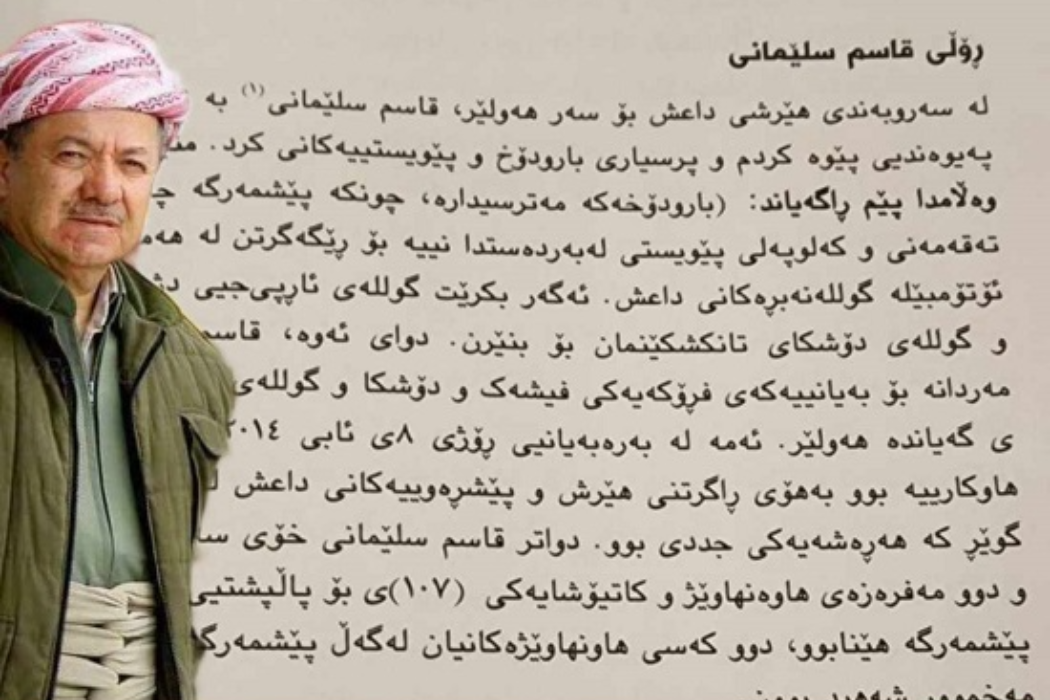 ڕۆڵی قاسم سلێمانی
لە سەروبەندی هێرشی داعش بۆ سەر هەولێر، قاسم سلێمانی(١) بە
پەیوەندیی پێوە کردم و پرسیاری بارودۆخ و پێویستییەکانی کرد.
وەڵامدا پێم ڕاگەیاند: (بارودۆخەکە مەترسیدارە، چونکە پێشمەرگە
تەقەمەنی و کەلوپەلی پێویستی لەبەردەستدا نییە بۆ ڕێگەگرتن لە
ئۆتۆمبێلە گوللەنەبڕەکانی داعش. ئەگەر بکرێت گوللەی ئاڕپیجیی
و گوللەی دۆشکای تانکشکێنمان بۆ بنێرن. دوای ئەوە، قاسم
مەردانە بۆ بەیانییەکەی فڕۆکەیەکی فیشەک و دۆشکا و گوللەی
ی گەیاندە هەولێر. ئەمە لە بەرەبەیانیی ڕۆژی ٨ی ئابی ٢٠١٤
هاوکارییە بوو بەهۆی ڕاگرتنی هێرش و پێشڕەوییەکانی داعش
گوێڕ کە هەڕەشەیەکی جددی بوو. دواتر قاسم سلێمانی خۆی
و دوو مەفرەزەی هاوەنهاوێژ و کاتیۆشایەکی (١٠٧)ی بۆ پاڵپشتیی
پێشمەرگە هێنابوو، دوو کەسی هاونهاوێژەکانیان لەگەڵ پێشمەرگە